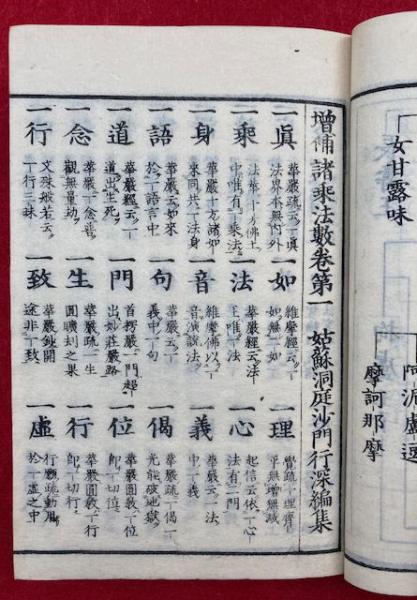 女甘露味
阿泥盧
摩訶那摩
增補諸乘法數卷第一 姑蘇洞庭沙門行深編集
一眞 華嚴疏云一眞
法界本無內外
一如 維摩經云
如無二如
一理 覺疏十理齊
平無增無減
一乘 法華十方佛土
中唯有一乘法
一法 華嚴經云法
王唯一法
一心 起信云依一心
法有二門
一身 華嚴十方諸如
來同共一法身
一音 維摩佛以一
音演說法
一義 華嚴云一法
中一義
一語 華嚴云如來
於一語言中
一句 華嚴云一
義中一句
一偈 華嚴疏一偈
光能破地獄
一道 華嚴經云一
道出生死
一門 首楞嚴一門超
出妙莊嚴路
一位 華嚴圓敎一位
即一切位
一念 華嚴一念普
觀無量劫
一生 華嚴疏一生
圓曠劫之果
一行 華嚴圓敎一行
即一切行
一行 文殊般若云
一行三昧
一致 華嚴鈔開
途非一致
一虛 行願疏動風
於一虛之中